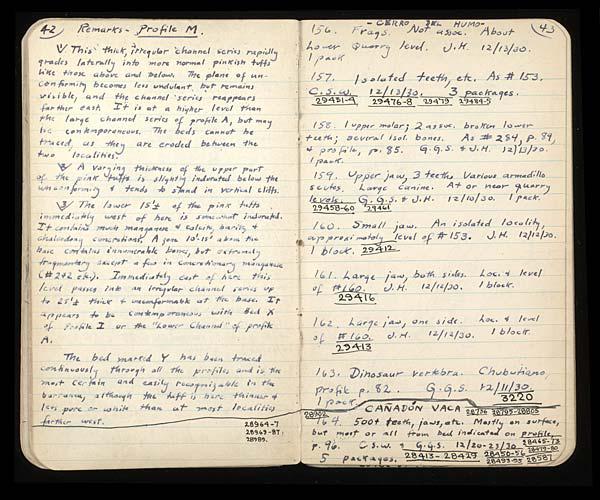 42 Remarks - Profile M.
1/ This thick, irregular channel series rapidly
grades laterally into more normal pinkish tuffs
like those above and below. The plane of un-
conformity becomes less undulant, but remains
visible, and the channel series reappears
farther east. It is at a higher level than
the large channel series of profile A, but may
be contemporaneous. The beds cannot be
traced, as they are eroded between the
two localities.
2/ A varying thickness of the upper part
of the pink tuffs is slightly indurated below the
unconformity & tends to stand in vertical cliffs.
3/ The lower 15'± of the pink tuffs
immediately west of here is somewhat indurated.
It contains much manganese & calcite, barite, &
chalcedony concretions. A zone 10'-15' above the
base contains innumerable bones, but extremely
fragmentary except a few in concretionary manganese
(#242 etc.). Immediately east of here this
level passes into an irregular channel series up
to 25'± thick & unconformable at the base. It
appears to be contemporaneous with Bed X
of Profile I or the "Lower Channel" of profile
A.
The bed marked Y has been traced
continuously through all the profiles and is the
most certain and easily recognizable in the
barranca, although the tuff is here thinner &
less pure or white than at most localities
farther west.
28964-7
28969-87,
28989.
- CERRO DEL HUMO - 43
156. Frags. Not assoc. About
lower quarry level. J.H. 12/13/30.
1 pack
157. Isolated teeth, etc. As #153.
C.S.W. 12/13/30. 3 packages.
29451-4 29476-8 29479 29484-5
158. 1 upper molar; 2 assoc. broken lower
teeth; several isol. bones. As #284, p. 84,
& profile, p. 85. G.G.S. & J.H. 12/13/30.
1 pack.
159. Upper jaw, 3 teeth. Various armadillo
scutes. Large canine. At or near quarry
levels. G.G.S. & J.H. 12/10/30. 1 pack.
29458-60 29461
160. Small jaw. An isolated locality,
approximately level of #153. J.H. 12/12/30.
1 block. 29412
161. Large jaw, both sides. Loc. & level
of #160. J.H. 12/12/30. 1 block.
29416
162. Large jaw, one side. Loc. & level
of #160. J.H. 12/12/30. 1 block.
29413
163. Dinosaur vertebra. Chubutiano,
profile p. 82. G.G.S. 12/11/30.
1 pack. 3220
CAÑADÓN VACA
164. 500± teeth, jaws, etc. Mostly on surface,
but most or all from bed indicated on profile,
p. 96. C.S.W. & G.G.S. 12/20-23/30 28465-73
5 packages. 28413-28429 28450-56